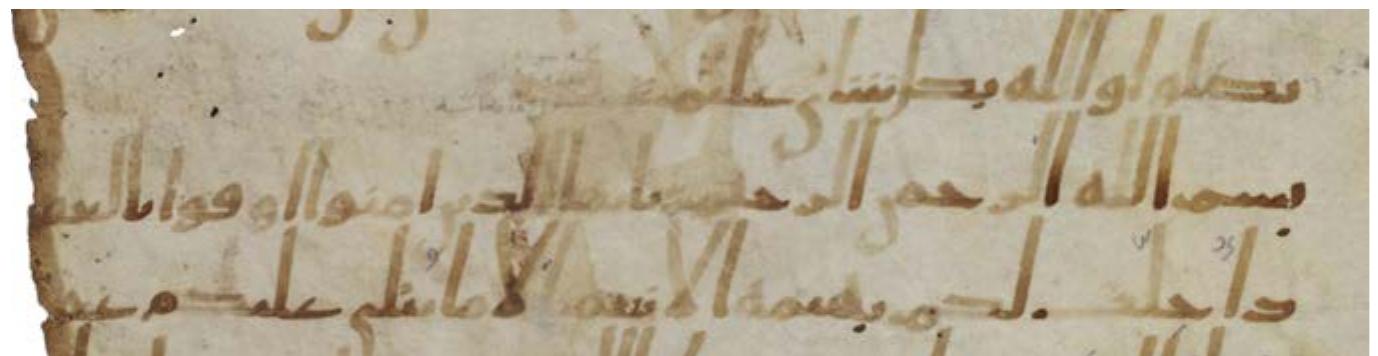 تضلوا والله بكل شى عليم
بسم الله الرحمن الرحيم يايها الذين امنوا اوفوا بالعقو
د احلت لكم بهيمة الانعم الا ما يتلى عليكم غير